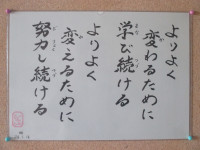 よりよく
変わるために
学び続ける
よりよく
変えるために
努力し続ける